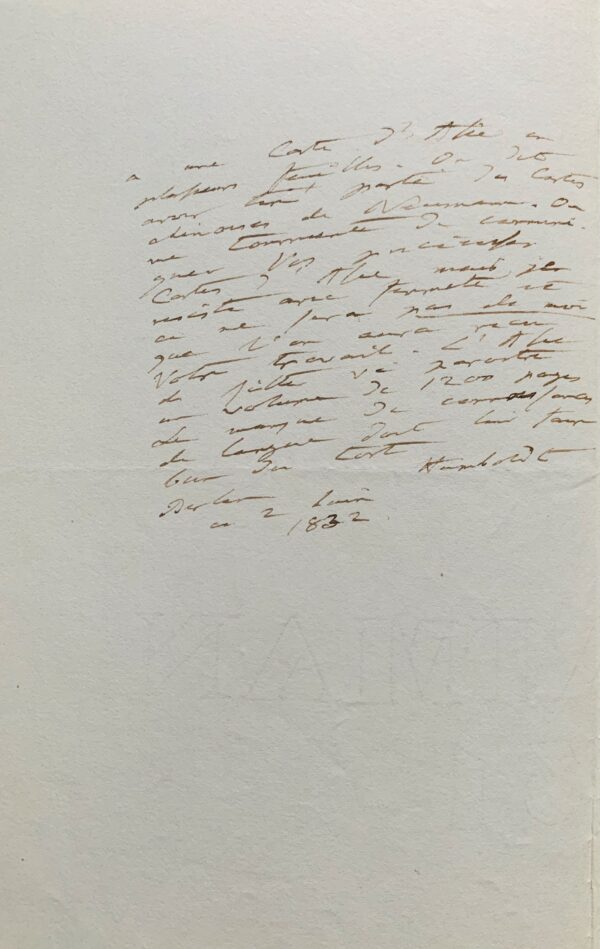 a une Carte d'Asie en
plusieurs feuilles. On dit
avoir tiré parti des Cartes
chinoises de Neumann. On
me tourmente de communi-
quer Vos précieuses
Cartes d'Asie, mais je
résiste avec fermeté et
ce ne sera pas de moi
que l'on aura reçu
Votre travail. L'Asie
de Ritter va paroitre
un volume de 1200 pages
Le manque de connoissances
de langue doit lui faire
bien du tort
Humboldt
Berlin
ce 2 Juin
1832